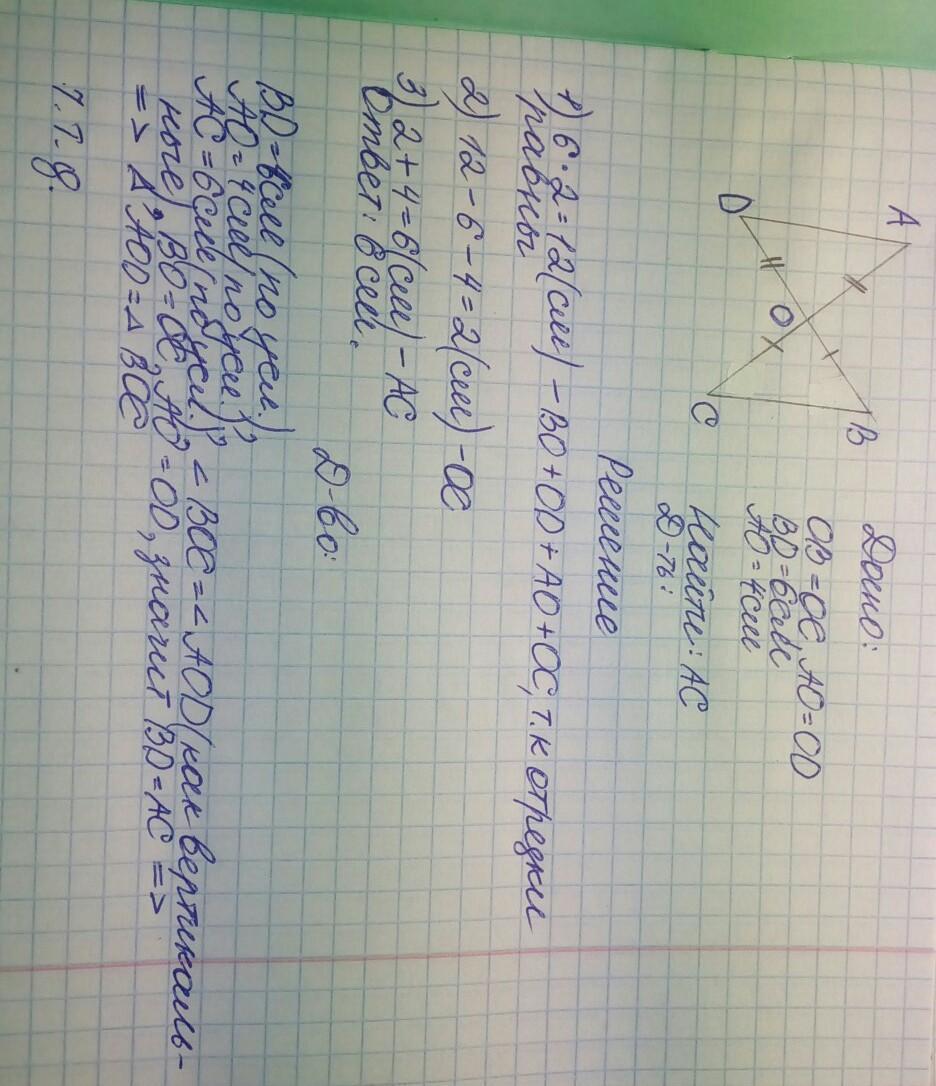 A
B
D
O
C
Дано:
OB = OC, AO = OD
BD = 6см
AO = 4см
Найти: AC
Д-ть:
Решение
1) 6 · 2 = 12(см) – BO + OD + AO + OC, т.к отрезки
равны
2) 12 – 6 – 4 = 2(см) – OC
3) 2 + 4 = 6(см) – AC
Ответ: 6 см.
Д-во:
BD = 6см(по усл.)
AO = 4см(по усл.)
AC = 6см(по усл.), < BOC = < AOD(как вертикаль-
ные), BO = OC, AO = OD, значит BD = AC =>
=> ∆ AOD = ∆ BOC
ч.т.д.